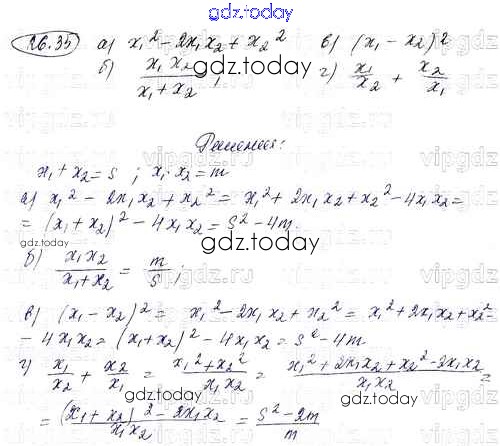 gdz.today
26.35 а) x₁² - 2x₁x₂ + x₂² в) (x₁ - x₂)²
б) x₁x₂/(x₁+x₂); г) x₁/x₂ + x₂/x₁
gdz.today
Решение:
x₁ + x₂ = s ; x₁·x₂ = m
а) x₁² - 2x₁x₂ + x₂² = x₁² + 2x₁x₂ + x₂² - 4x₁x₂ =
= (x₁ + x₂)² - 4x₁x₂ = s² - 4m.
gdz.today
gdz.today
б) x₁x₂/(x₁+x₂) = m/s;
в) (x₁ - x₂)² = x₁² - 2x₁x₂ + x₂² = x₁² + 2x₁x₂ + x₂² -
- 4x₁x₂ = (x₁ + x₂)² - 4x₁x₂ = s² - 4m
г) x₁/x₂ + x₂/x₁ = (x₁² + x₂²)/(x₁x₂) = (x₁² + 2x₁x₂ + x₂² - 2x₁x₂)/(x₁x₂) =
= ((x₁ + x₂)² - 2x₁x₂)/(x₁x₂) = (s² - 2m)/m
gdz.today